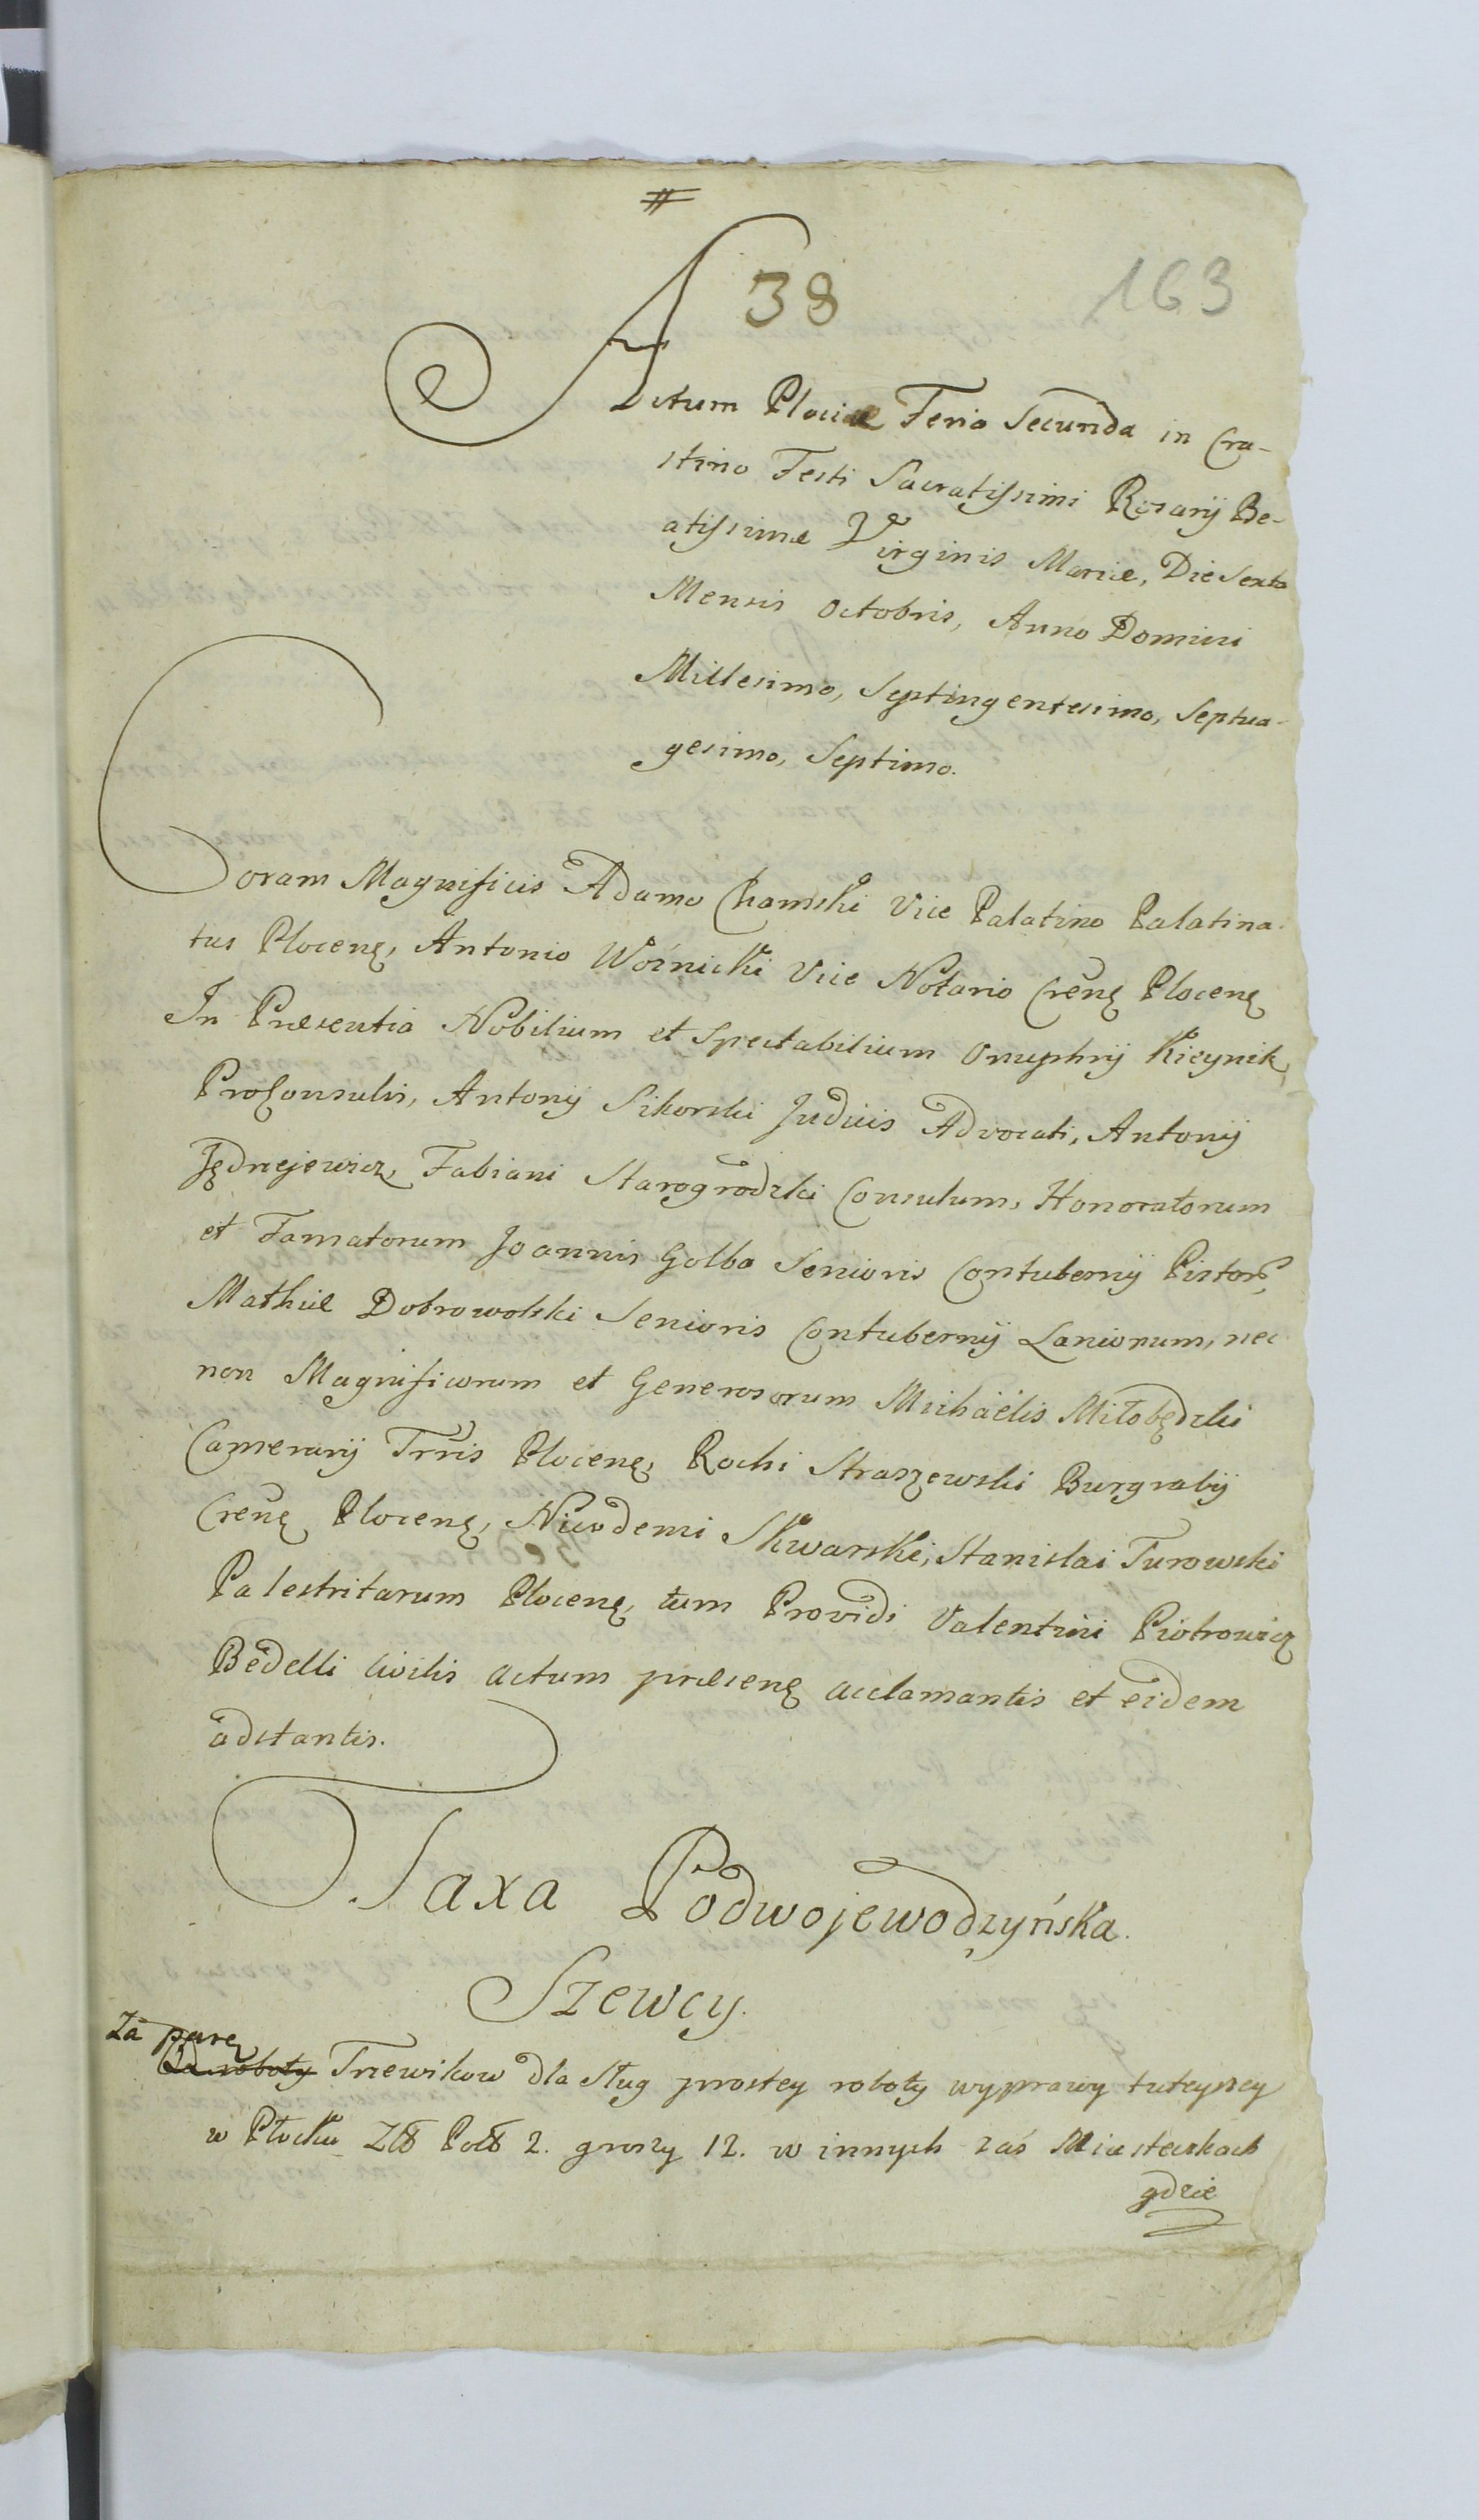 #
38
163
Actum Plociæ Feria Secunda in Cra-
stino Festi Sacratissimi Rosarij Be-
atissimæ Virginis Mariæ, Die Sexta
Mensis Octobris, Anno Domini
Millesimo, Septingentesimo, Septua-
gesimo, Septimo.
Coram Magnificis Adamo Chamski Vice Palatino Palatina-
tus Plocenę, Antonio Woźnicki Vice Notario Crenę Plocenę
In Præsentia Nobilium et Spectabilium Onuphrij Kicynik,
ProConsulis, Antonij Sikorski Judicis Advocati, Antonij
Jędrzejewicz, Fabiani Starogrodzki Consulum, Honoratorum
et Famatorum Joannis Golba Senioris Contubernij Pistorꝫ,
Mathiæ Dobrowolski Senioris Contubernij Lanionum, nec
non Magnificorum et Generosorum Michaëlis Miłobędzki
Camerarij Trris Plocenę, Rochi Straszewski Burgrabij
Crenę Plocenę, Nicodemi Skwarski, Stanislai Turowski
Palestritarum Plocenę, tum Providi Valentini Piotrowicz
Bedelli Civilis actum præsenę acclamantis et eidem
adstantis.
Taxa Podwojewodzyńska.
Szewcy.
Za parę
Od roboty Trzewikow dla sług prostey roboty wyprawy tuteyszey
w Płocku Zł Pol 2. groszy 12. w innych zaś Miasteczkach
gdzie